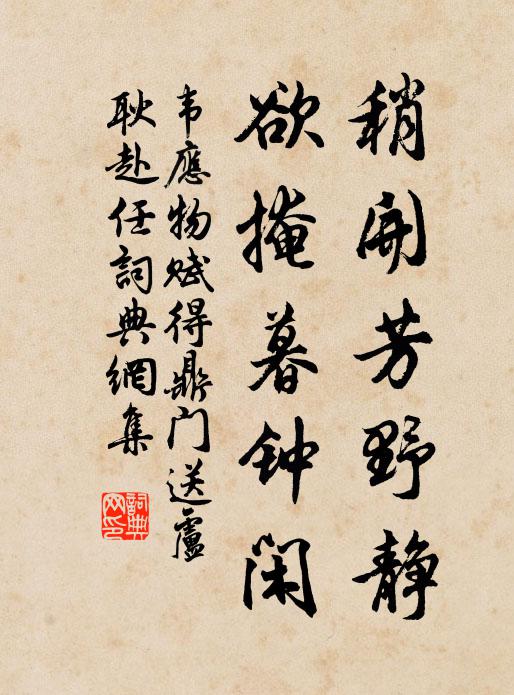 稍开芳野静
欲掩暮钟闲
韦應物赋得鼎门送盧
耿赴任詞典網集
詞典
网印